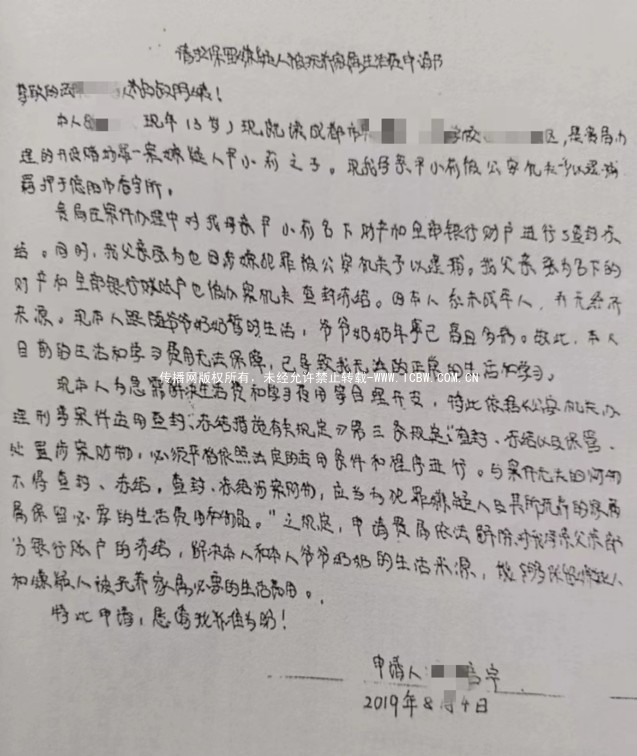 请求保留嫌疑人被扶养家属生活费申请书
尊敬的
本人 现年13岁,现就读成都市 学校 区,是贵局办
理的开设赌场罪一案嫌疑人尹小莉之子。现我母亲尹小莉被公安机关予以逮捕
羁押于德阳市看守所。
贵局在案件办理中对我母亲尹小莉名下财产和全部银行财户进行了查封冻
结。同时,我父亲 也因涉嫌犯罪被公安机关予以逮捕。我父亲 名下的
财产和全部银行账户也被办案机关查封冻结。因本人系未成年人,无经济
来源。现本人跟随爷爷奶奶暂时生活,爷爷奶奶年事已高且多病。故此,本人
目前的生活和学习费用无法保障,已导致我无法的正常的生活和学习。
传播网版权所有,未经允许禁止转载-WWW.ICBW.COM.CN
现本人为恳解决生活费和学习费用等合理开支,特此依据《公安机关办
理刑事案件适用查封、冻结措施有关规定》第三条规定:"查封、冻结以及保管、
处置涉案财物,必须严格依照法定的适用条件和程序进行。与案件无关的财物
不得查封、冻结。查封、冻结涉案财物,应当为犯罪嫌疑人及其所扶养的家
属保留必要的生活费用和物品。"之规定,申请贵局依法解除对我母亲父亲部
分银行账户的冻结,解决本人和本人爷爷奶奶的生活来源,能够保留嫌疑人
和嫌疑人被扶养家属必要的生活费用。
特此申请,恳请批准为盼!
申请人: 宇
2019年8月4日